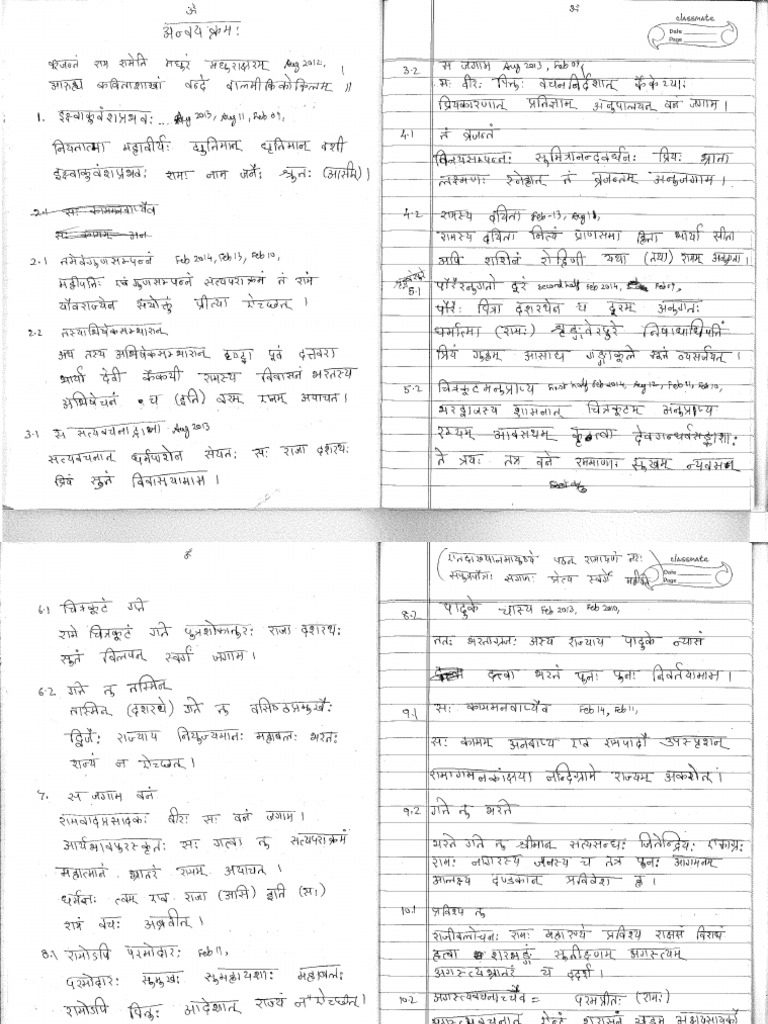 ॐ
अन्वयक्रमः
कूजन्तं राम रामेति मधुरं मधुराक्षरम् Aug 2012, ।
आरुह्य कविताशाखां वन्दे वाल्मीकिकोकिलम् ॥
1. इक्ष्वाकुवंशप्रभवः... Aug 2013, Aug 11, Feb 09,
नियतात्मा महावीर्यः द्युतिमान् धृतिमान् वशी
इक्ष्वाकुवंशप्रभवः रामः नाम जनैः श्रुतः (आसीत्) ।
2.1 सः कामनवाप्यैव
सः कामम् अन
2.1 तमेवंगुणसम्पन्नं Feb 2014, Feb 13, Feb 10,
महीपतिः एवंगुणसम्पन्नं सत्यपराक्रमं तं रामं
यौवराज्येन संयोक्तुं प्रीत्या ऐच्छत् ।
2.2 तस्याभिषेकसम्भारान्
अथ तस्य अभिषेकसम्भारान् दृष्ट्वा पूर्वं दत्तवरा
भार्या देवी कैकयी रामस्य विवासनं भरतस्य
अभिषेचनं च (इति) वरम् एनम् अयाचत ।
3.1 स सत्यवचनाद्राजा Aug 2013
सत्यवचनात् धर्मपाशेन संयतः सः राजा दशरथः
प्रियं सुतं विवासयामास ।
ॐ
classmate
Date
Page
3.2 स जगाम Aug 2013, Feb 09,
सः वीरः पितुः वचननिर्देशात् कैकेय्याः
प्रियकारणात् प्रतिज्ञाम् अनुपालयन् वनं जगाम ।
4.1 तं व्रजन्तं
विनयसम्पन्नः सुमित्रानन्दवर्धनः प्रियः भ्राता
लक्ष्मणः स्नेहात् तं व्रजन्तम् अनुजगाम ।
4.2 रामस्य दयिता Feb-13, Aug 11,
रामस्य दयिता नित्यं प्राणसमा हिता भार्या सीता
अपि शशिनं रोहिणी यथा (तथा) रामम् अनुगता ।
5.1 पौरैरनुगतो दूरं second half Feb 2014, Feb 09,
पौरैः पित्रा दशरथेन च दूरम् अनुगतः
धर्मात्मा (रामः) शृङ्गवेरपुरे निषादाधिपतिं
प्रियं गुहम् आसाद्य गङ्गाकूले सूतं व्यसर्जयत् ।
5.2 चित्रकूटमनुप्राप्य First half Feb 2014, Aug 12, Feb 11, Feb 10,
भरद्वाजस्य शासनात् चित्रकूटम् अनुप्राप्य
रम्यम् आवसथम् कृत्वा देवगन्धर्वसङ्काशाः
ते त्रयः तत्र वने रममाणाः सुखम् न्यवसन्
ॐ
6.1 चित्रकूटं गते
रामे चित्रकूटं गते पुत्रशोकातुरः राजा दशरथः
सुतं विलपन् स्वर्गं जगाम ।
6.2 गते तु तस्मिन्
तस्मिन् (दशरथे) गते तु वसिष्ठप्रमुखैः
द्विजैः राज्याय नियुज्यमानः महाबलः भरतः
राज्यं न ऐच्छत् ।
7. स जगाम वनं
रामपादप्रसादकः वीरः सः वनं जगाम ।
आर्यभावपुरस्कृतः सः गत्वा तु सत्यपराक्रमं
महात्मानं भ्रातरं रामम् अयाचत् ।
धर्मज्ञः त्वम् एव राजा (असि) इति (सः)
रामं वचः अब्रवीत् ।
8.1 रामोऽपि परमोदारः Feb 11,
परमोदारः सुमुखः सुमहायशाः महाबलः
रामोऽपि पितुः आदेशात् राज्यं न ऐच्छत् ।
(एतदाख्यानमायुष्यं पठन् रामायणं नरः
सपुत्रपौत्रः सगणः प्रेत्य स्वर्गे महीयते
classmate
Date
Page
8.2 पादुके चास्य Feb 2013, Feb 2010,
ततः भरताग्रजः अस्य राज्याय पादुके न्यासं
दत्त्वा भरतं पुनः पुनः निवर्तयामास ।
9.1 सः काममनवाप्यैव Feb 14, Feb 11,
सः कामम् अनवाप्य एव रामपादौ उपस्पृशन्
रामागमनकांक्षया नन्दिग्रामे राज्यम् अकरोत् ।
9.2 गते तु भरते
भरते गते तु श्रीमान् सत्यसन्धः जितेन्द्रियः एकाग्रः
रामः नागरस्य जनस्य च तत्र पुनः आगमनम्
आलक्ष्य दण्डकान् प्रविवेश ह ।
10.1 प्रविश्य तु
राजीवलोचनः रामः महारण्यं प्रविश्य राक्षसं विराधं
हत्वा शरभङ्गं सुतीक्ष्णम् अगस्त्यम्
अगस्त्यभ्रातरं च ददर्श ।
10.2 अगस्त्यवचनाच्चैव = परमप्रीतः (रामः)
अगस्त्यवचनात् ऐन्द्रं शरासनं खड्गम् अक्षयसायकौ